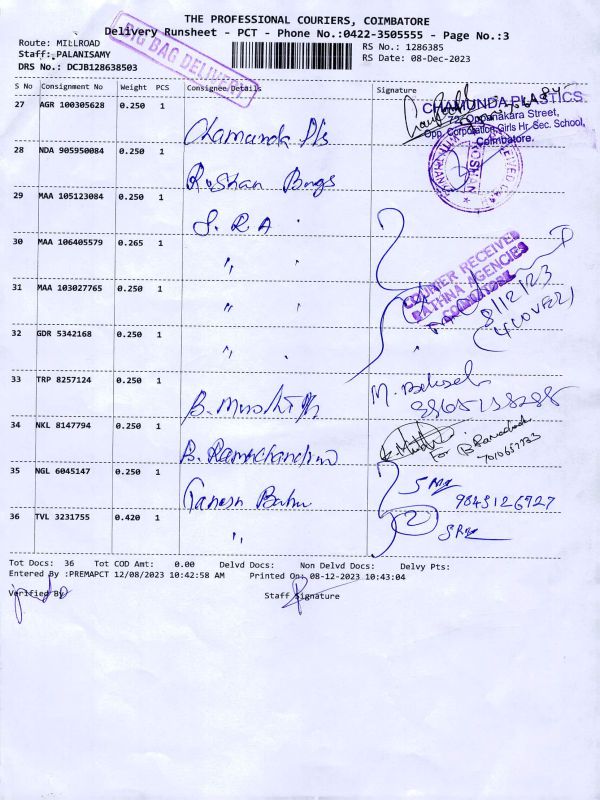 THE PROFESSIONAL COURIERS, COIMBATORE
Delivery Runsheet - PCT - Phone No.:0422-3505555 - Page No.:3
BIG BAG DELIVERY
Route: MILLROAD
RS No.: 1286385
Staff: PALANISAMY
RS Date: 08-Dec-2023
DRS No.: DCJB128638503
S No Consignment No Weight PCS Consignee/Details Signature
27 AGR 100305628 0.250 1
Chamunda Pls
CHAMUNDA PLASTICS.
72, Oppanakara Street,
Opp. Corporation Girls Hr. Sec. School,
Coimbatore.
28 NDA 905950084 0.250 1
Roshan Bags
29 MAA 105123084 0.250 1
S. R A "
30 MAA 106405579 0.265 1
" "
COURIER RECEIVED
PATHNA AGENCIES
COIMBATORE
31 MAA 103027765 0.250 1
" "
8/12/23
(4 COVER)
32 GDR 5342168 0.250 1
" "
33 TRP 8257124 0.250 1
34 NKL 8147794 0.250 1
B. Ramachandran
For B Ramachandran
35 NGL 6045147 0.250 1
Ganesh Babu
9843126927
36 TVL 3231755 0.420 1
"
2
Tot Docs: 36 Tot COD Amt: 0.00 Delvd Docs: Non Delvd Docs: Delvy Pts:
Entered By :PREMAPCT 12/08/2023 10:42:58 AM Printed On: 08-12-2023 10:43:04
Verified By Staff Signature